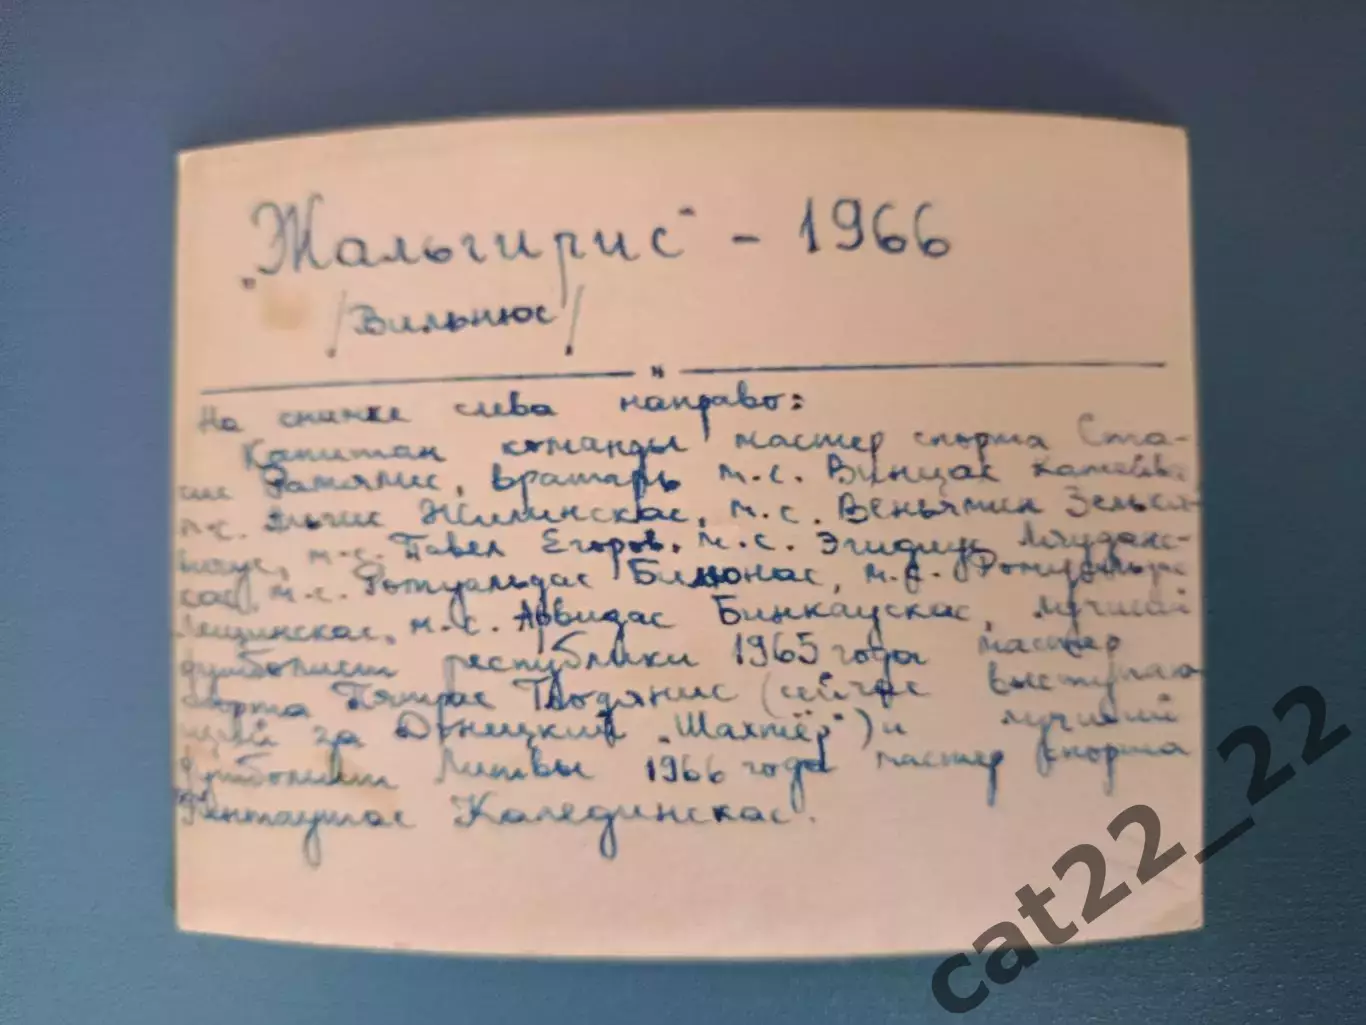 „Жальгирис" - 1966
/Вильнюс/
На снимке слева направо:
Капитан команды мастер спорта Ста-
сис Рамялис, вратарь м.с. Винцас
м.с. Альгис Жилинскас, м.с. Веньямин Зельке-
вичус, м.с. Павел Егоров, м.с. Эгидиус
кас, м.с. Ромуальдас Бимонас, м.с. Ромуальдас
Лещинскас, м.с. Арвидас Бинкаускас, лучший
футболист республики 1965 года мастер
спорта Пятрас Глодянис (сейчас выступаю
щий за Донецкий „Шахтёр") и лучший
футболист Литвы 1966 года мастер спорта
Калединскас.
cat22_22